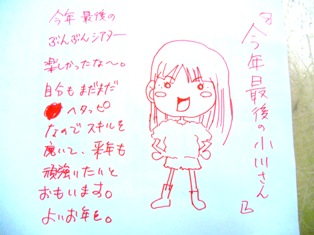 今年最後の
ぶんぶんシアター
楽しかったな〜。
自分もまだまだ
ヘタッピ
なのでスキルを
磨いて、来年も
頑張りたいと
おもいます。
よいお年を。
『今年最後の小川さん』